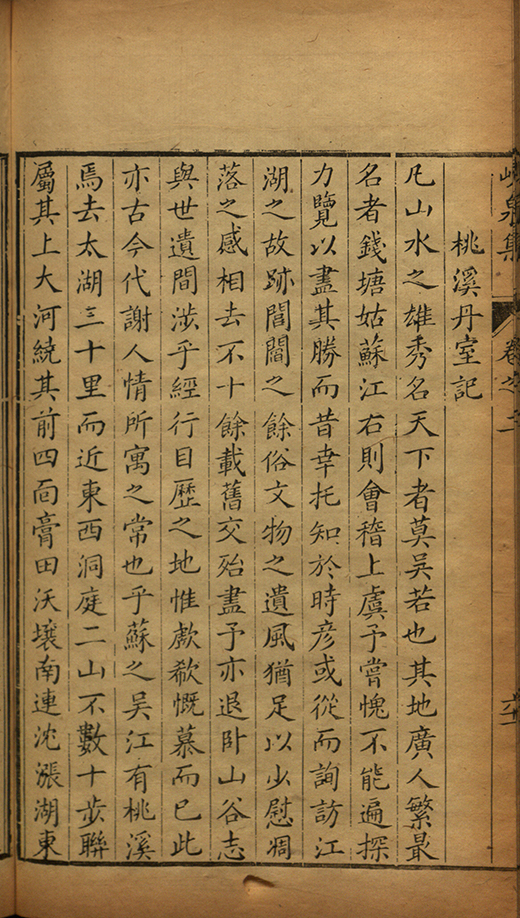 峴泉集 卷之二
桃溪丹室記
凡山水之雄秀名天下者莫吳若也其地廣人繁最
名者錢塘姑蘇江右則會稽上虞予嘗愧不能遍探
力覽以盡其勝而昔幸托知於時彦或從而詢訪江
湖之故跡閭閻之餘俗文物之遺風猶足以少慰凋
落之感相去不十餘載舊交殆盡予亦退卧山谷志
與世遺間涉乎經行目歷之地惟歔欷慨慕而已此
亦古今代謝人情所寓之常也乎蘇之吳江有桃溪
焉去太湖三十里而近東西洞庭二山不數十步聯
屬其上大河繞其前四面膏田沃壤南連沈漲湖東